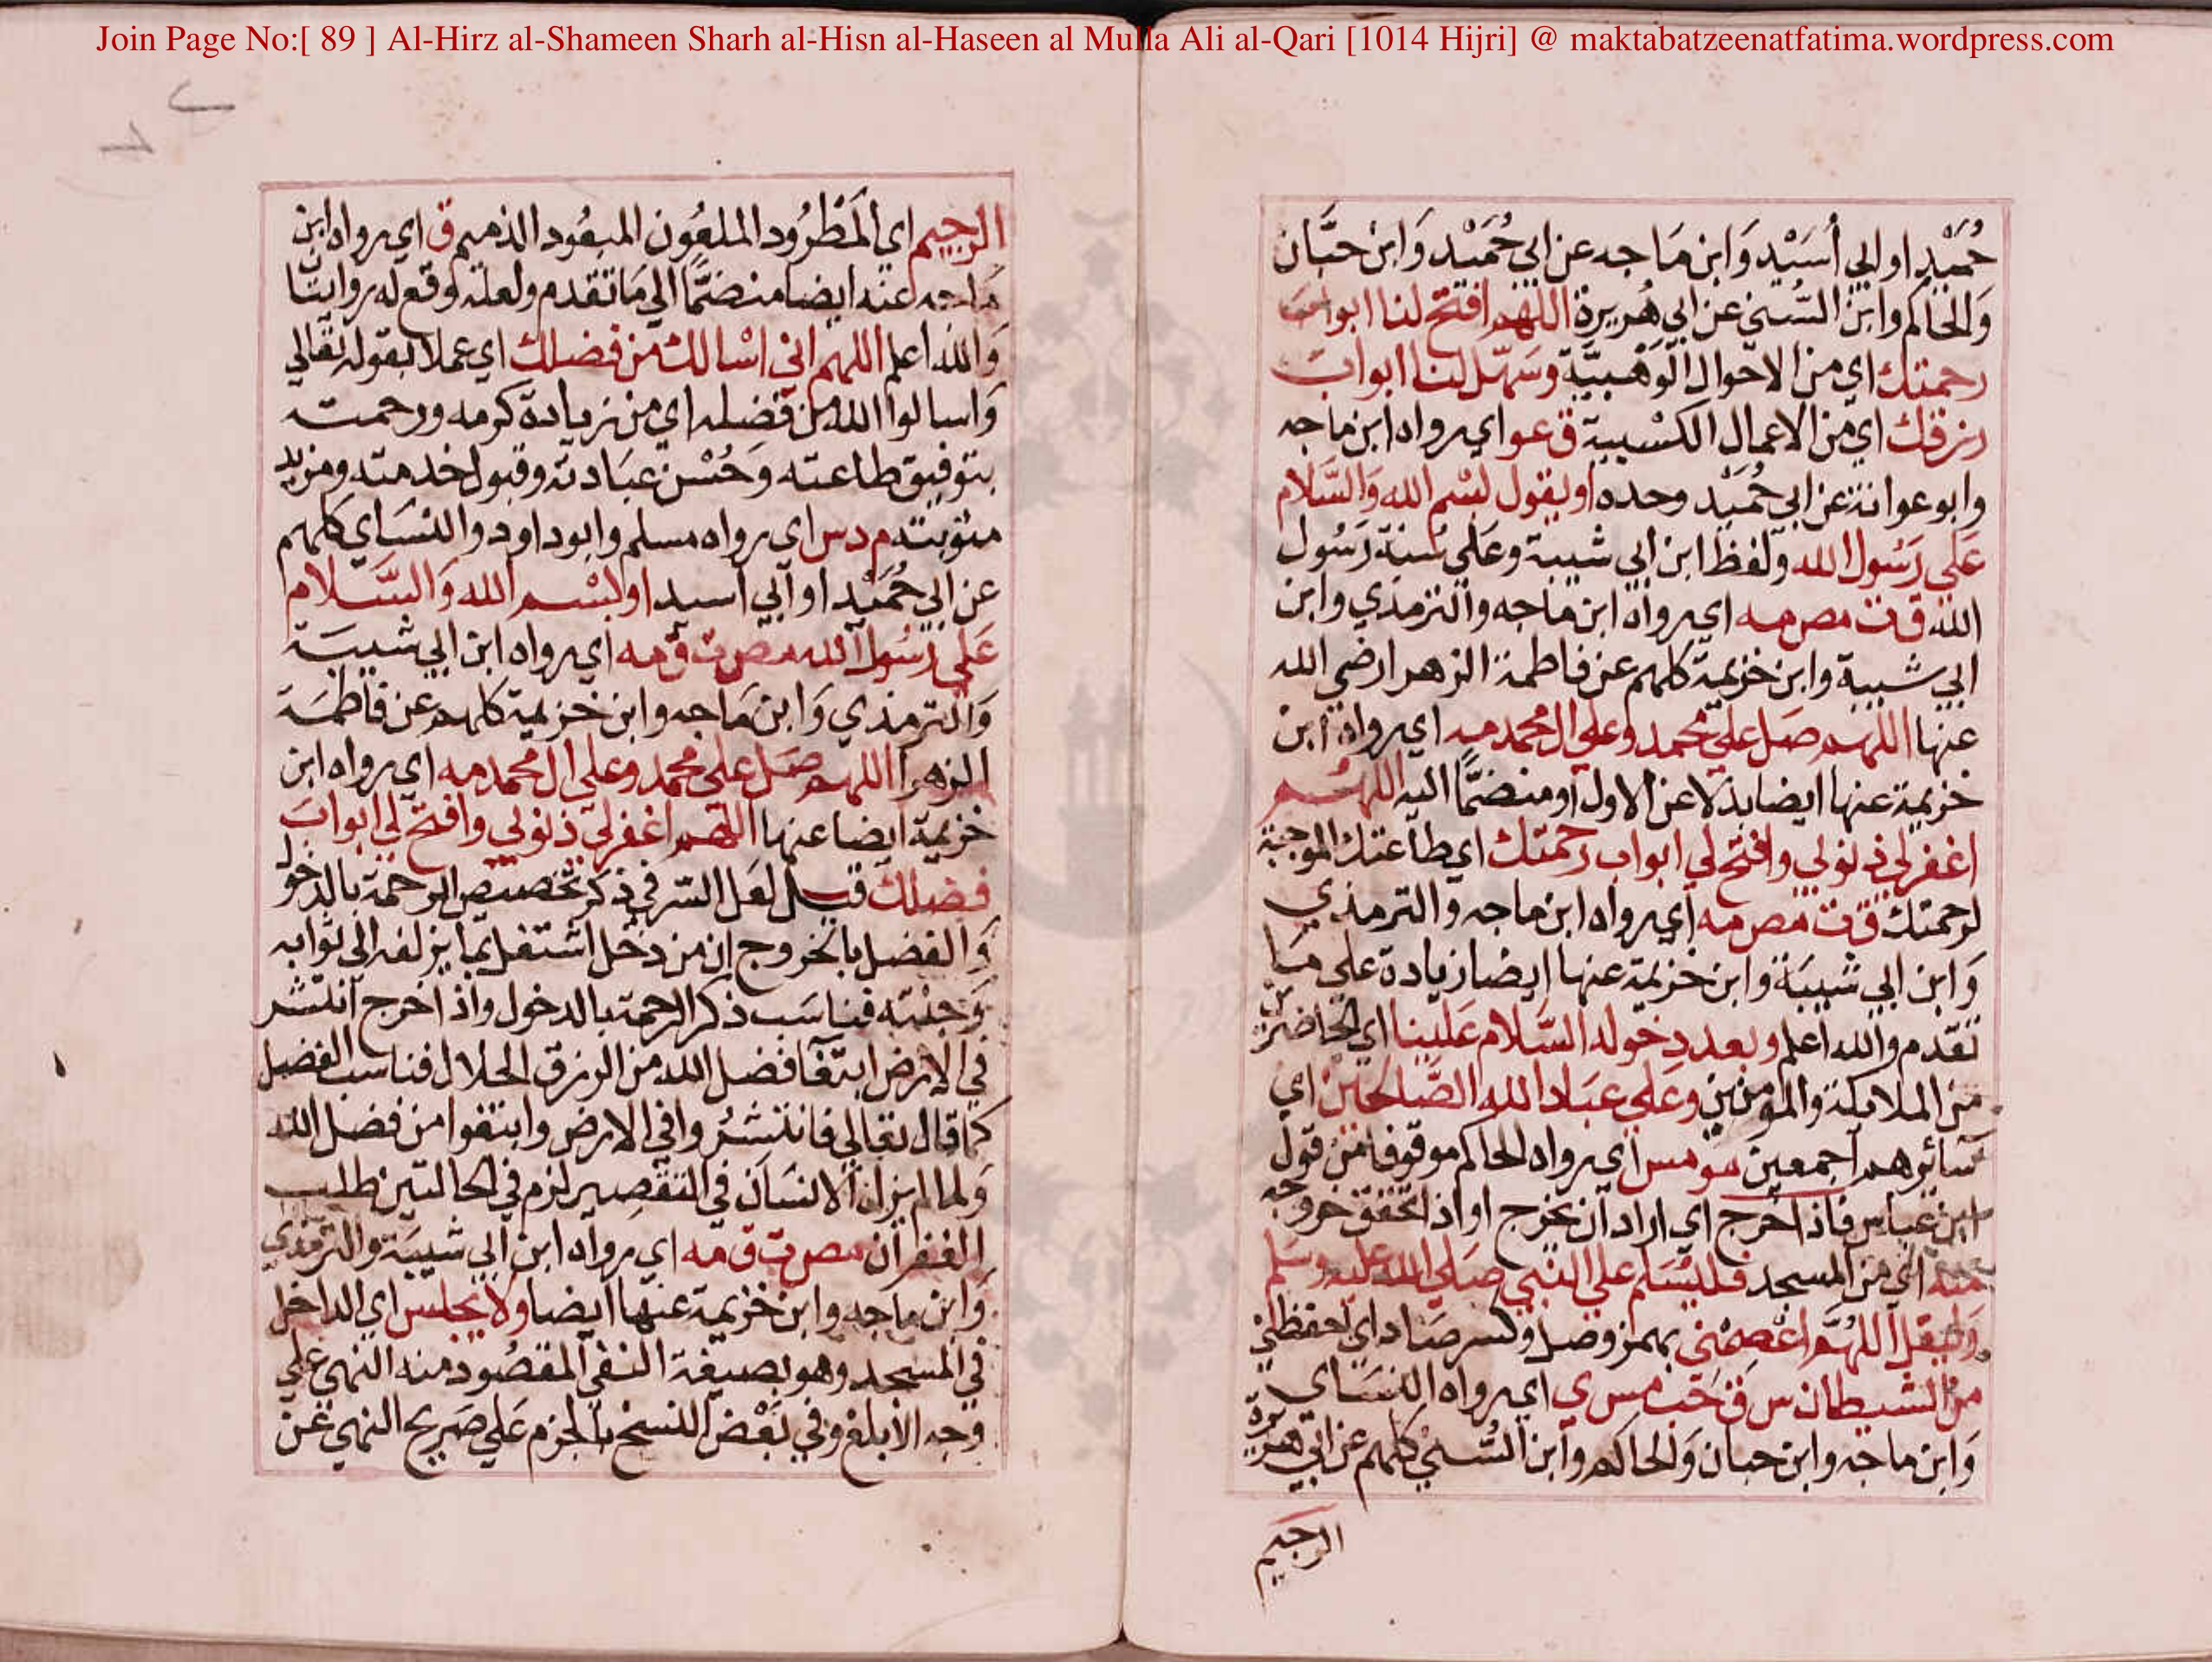 Join Page No:[ 89 ] Al-Hirz al-Shameen Sharh al-Hisn al-Haseen al Mulla Ali al-Qari [1014 Hijri] @ maktabatzeenatfatima.wordpress.com
حُمَيْدٍ او ابي أُسَيْد وَابن مَاجه عن ابي حُمَيْد وَابن حبَّان
وَالحاكم وابن السُّني عن ابي هُريرة اللهم افتح لنا ابواب
رحمتك اي من الاحوال الوَهْبيَّة وسَهّل لنا ابوابَ
رزقك اي من الاعمال الكسْبية ق عو اي رواه ابن ماجه
وابو عوانة عن ابي حُمَيْد وحده او يقول بسْم الله وَالسَّلام
عَلي رَسُول الله ولفظ ابن ابي شيبة وعَلي سُنة رَسُول
الله ق ت مص مه اي رواه ابن ماجه والترمذي وابن
ابي شيبة وابن خزيمة كلهم عن فاطمة الزهرا رضي الله
عنها اللهم صَل علي محمد وعلي ال محمد مه اي رواه ابن
خزيمة عنها ايضا بدلا عن الاول او منضمًّا اليه اللهُم
اغفر لي ذنوبي وافتح لي ابواب رحمتك اي طاعتك الموجبة
لرحمتك ق ت مص مه اي رواه ابن ماجه والترمذي
وَابن ابي شيبَة وابن خزيمة عنها ايضا زيادة علي مَا
تقدم والله اعلم وبعد دخوله السَّلام عَلينا اي الحاضرين
من الملايكة والمؤمنين وعَلي عبَاد الله الصَّالحين اي
سائرهم اجمعين مو مس اي رواه الحاكم موقوفا من قول
ابن عباس فاذا خرج اي اراد ان يخرج او اذا تحقق خروجه
منه اي من المسجد فليسَلم علي النبي صَلي الله عليه وسَلم
وَليقل اللهُمَّ اعْصِمْني بهمز وصل وكسر صَاد اي احفظني
من الشيطان س ق حب مس ي اي رواه النسَاي
وَابن ماجه وابن حبان وَالحاكم وابن السُّني كلهم عن ابي هريرة
الرجيم
الرجيم اي المَطْرُود الملعُون المبعُود الذميم ق اي رواه ابن
ماجه عنه ايضا منضمًّا الي مَا تقدم ولعله وقع له روايتان
وَالله اعلم اللهم اني اسْالك من فضلك اي عملا بقوله تعالي
وَاسالوا الله من فضله اي من زيادة كرمه ورحمته
بتوفيق طاعته وَحُسْن عبَادته وقبول خدمته ومزيد
مثوبته م د س اي رواه مسلم وابو داود والنسَاي كلهم
عن ابي حُمَيْد او ابي اسيد او بسْم الله وَالسَّلام
عَلي رَسُول الله مص ت ق مه اي رواه ابن ابي شيبَة
وَالترمذي وَابن مَاجه وابن خزيمة كلهم عن فاطمَة
الزهرا اللهم صَل علي محمد وعلي ال محمد مه اي رواه ابن
خزيمة ايضا عنها اللهم اغفر لي ذنوبي وافتح لي ابوابَ
فضلك قيل لعَل السّر في ذكر تخصيص الرحمة بالدخول
وَالفضل بالخروج ان من دخل اشتغل بما يزلفه الي ثوابه
وَجنته فناسَب ذكر الرحمة بالدخول واذا خرج انتشر
في الارض ابتغا فضل الله من الرزق الحلال فناسب الفضل
كما قال تعالي فانتشرُوا في الارض وابتغوا من فضل الله
وَلما لم يزل الانسَان في التقصير لزم في الحالتين طلب
الغفران مص ت ق مه اي رواه ابن ابي شيبَة والترمذي
وَابن ماجه وابن خزيمة عنها ايضا ولا يجلس اي الداخل
في المسجد وهو بصيغة النفي المقصُود منه النهي علي
وجه الابلغ وفي بَعْض النسخ بالجزم عَلي صَريح النهي عن